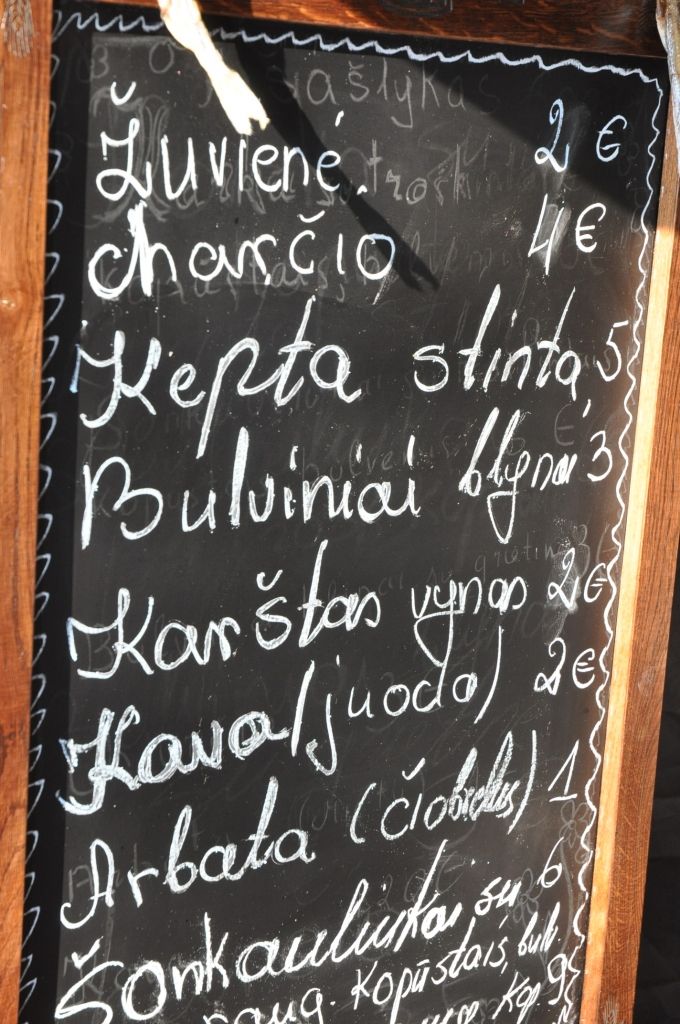 Žuvienė 2 €
charčio 4 €
Kepta stinta 5
Bulviniai blynai 3
Karštas vynas 2€
Kava (juoda) 2€
Arbata (čiobrelių) 1
Šonkauliukai su 6
raug. kopūstais, bulv.
kop. 9